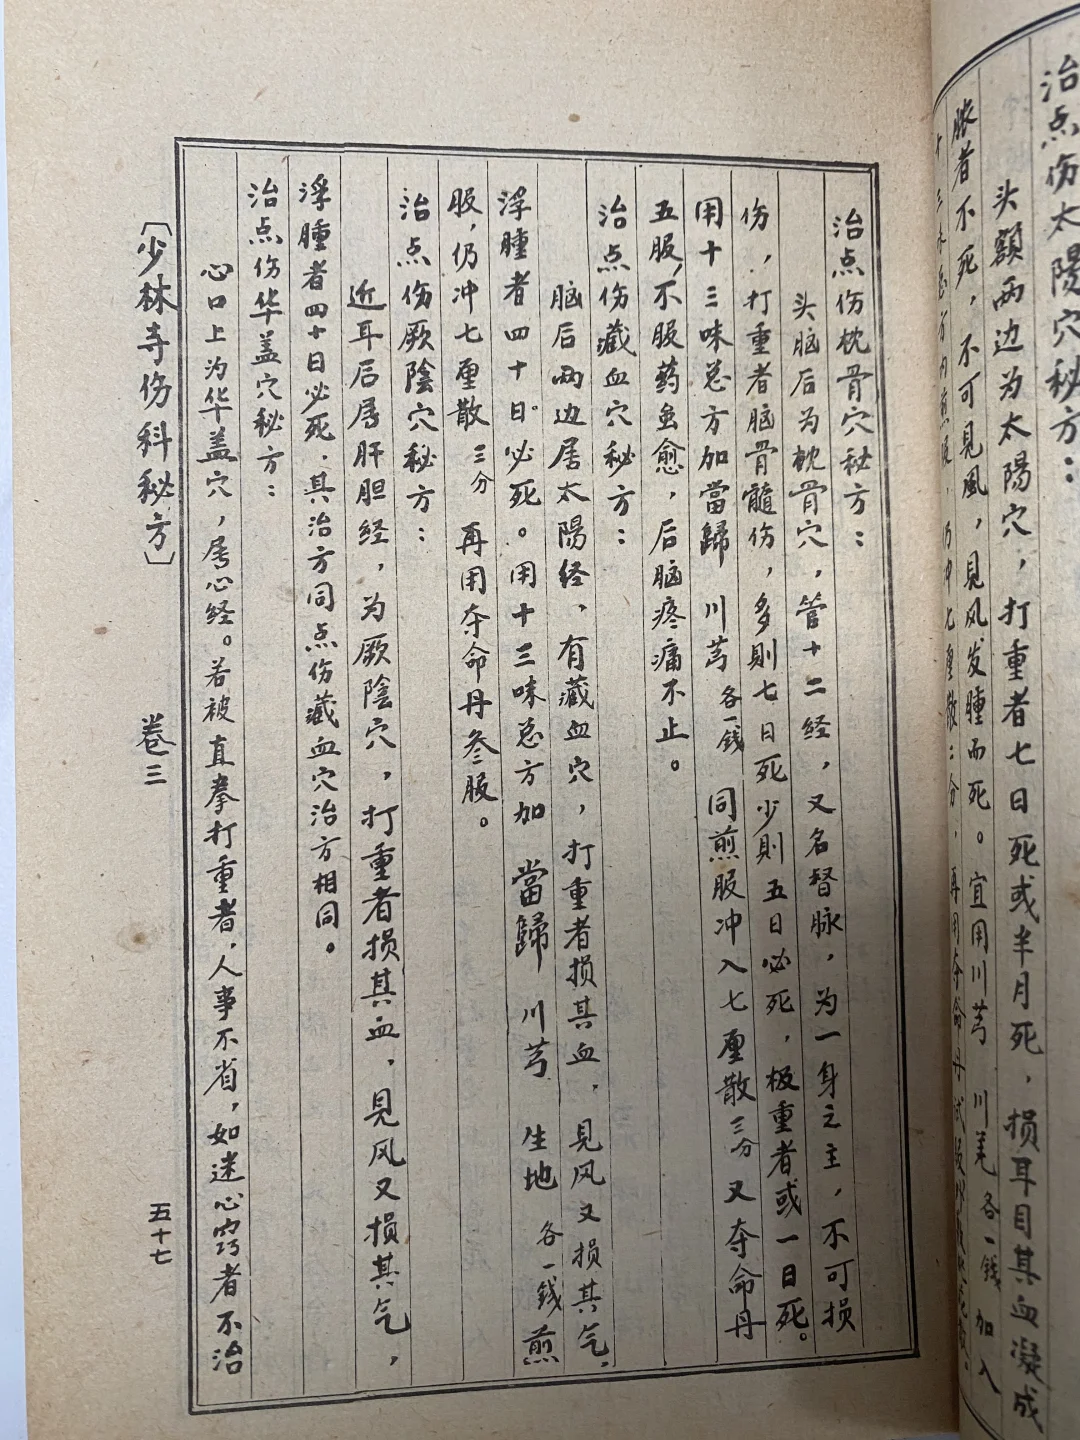 治点伤太陽穴秘方：
头額两边为太陽穴，打重者七日死或半月死，损耳目其血凝成
脓者不死，不可見風，見风发腫而死。宜用川芎 川羌 各一錢 加入
治点伤枕骨穴秘方：
头脑后为枕骨穴，管十二经，又名督脉，为一身之主，不可损
伤，打重者脑骨髓伤，多則七日死少則五日必死，极重者或一日死。
用十三味总方加當歸 川芎 各一錢 同煎服冲入七厘散三分又夺命丹
五服，不服药虽愈，后脑疼痛不止。
治点伤藏血穴秘方：
脑后两边居太陽经，有藏血穴，打重者损其血，見风又损其气，
浮腫者四十日必死。用十三味总方加 當歸 川芎 生地 各一錢 煎
服，仍冲七厘散三分 再用夺命丹叁服。
治点伤厥陰穴秘方：
近耳后属肝胆经，为厥陰穴，打重者损其血，見风又损其气，
浮腫者四十日必死．其治方同点伤藏血穴治方相同。
治点伤华盖穴秘方：
心口上为华盖穴，属心经。若被直拳打重者，人事不省，如迷心窍者不治
〔少林寺伤科秘方〕 卷三 五十七